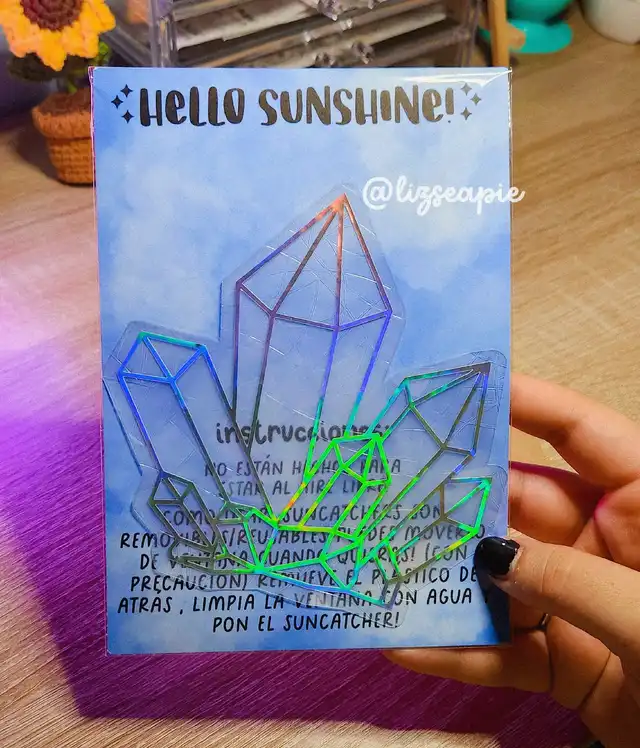 HELLO SUNSHINE!
@lizseapie
instrucciones:
NO ESTÁN HECHOS PARA
ESTAR AL AIRE LIBRE
COMO SUNCATCHERS SON
REMOVIBLES/REUSABLES PUEDES MOVERLO
DE VENTANA CUANDO QUIERAS! (CON
PRECAUCIÓN) REMUEVE EL PLÁSTICO DE
ATRÁS, LIMPIA LA VENTANA CON AGUA Y
PON EL SUNCATCHER!